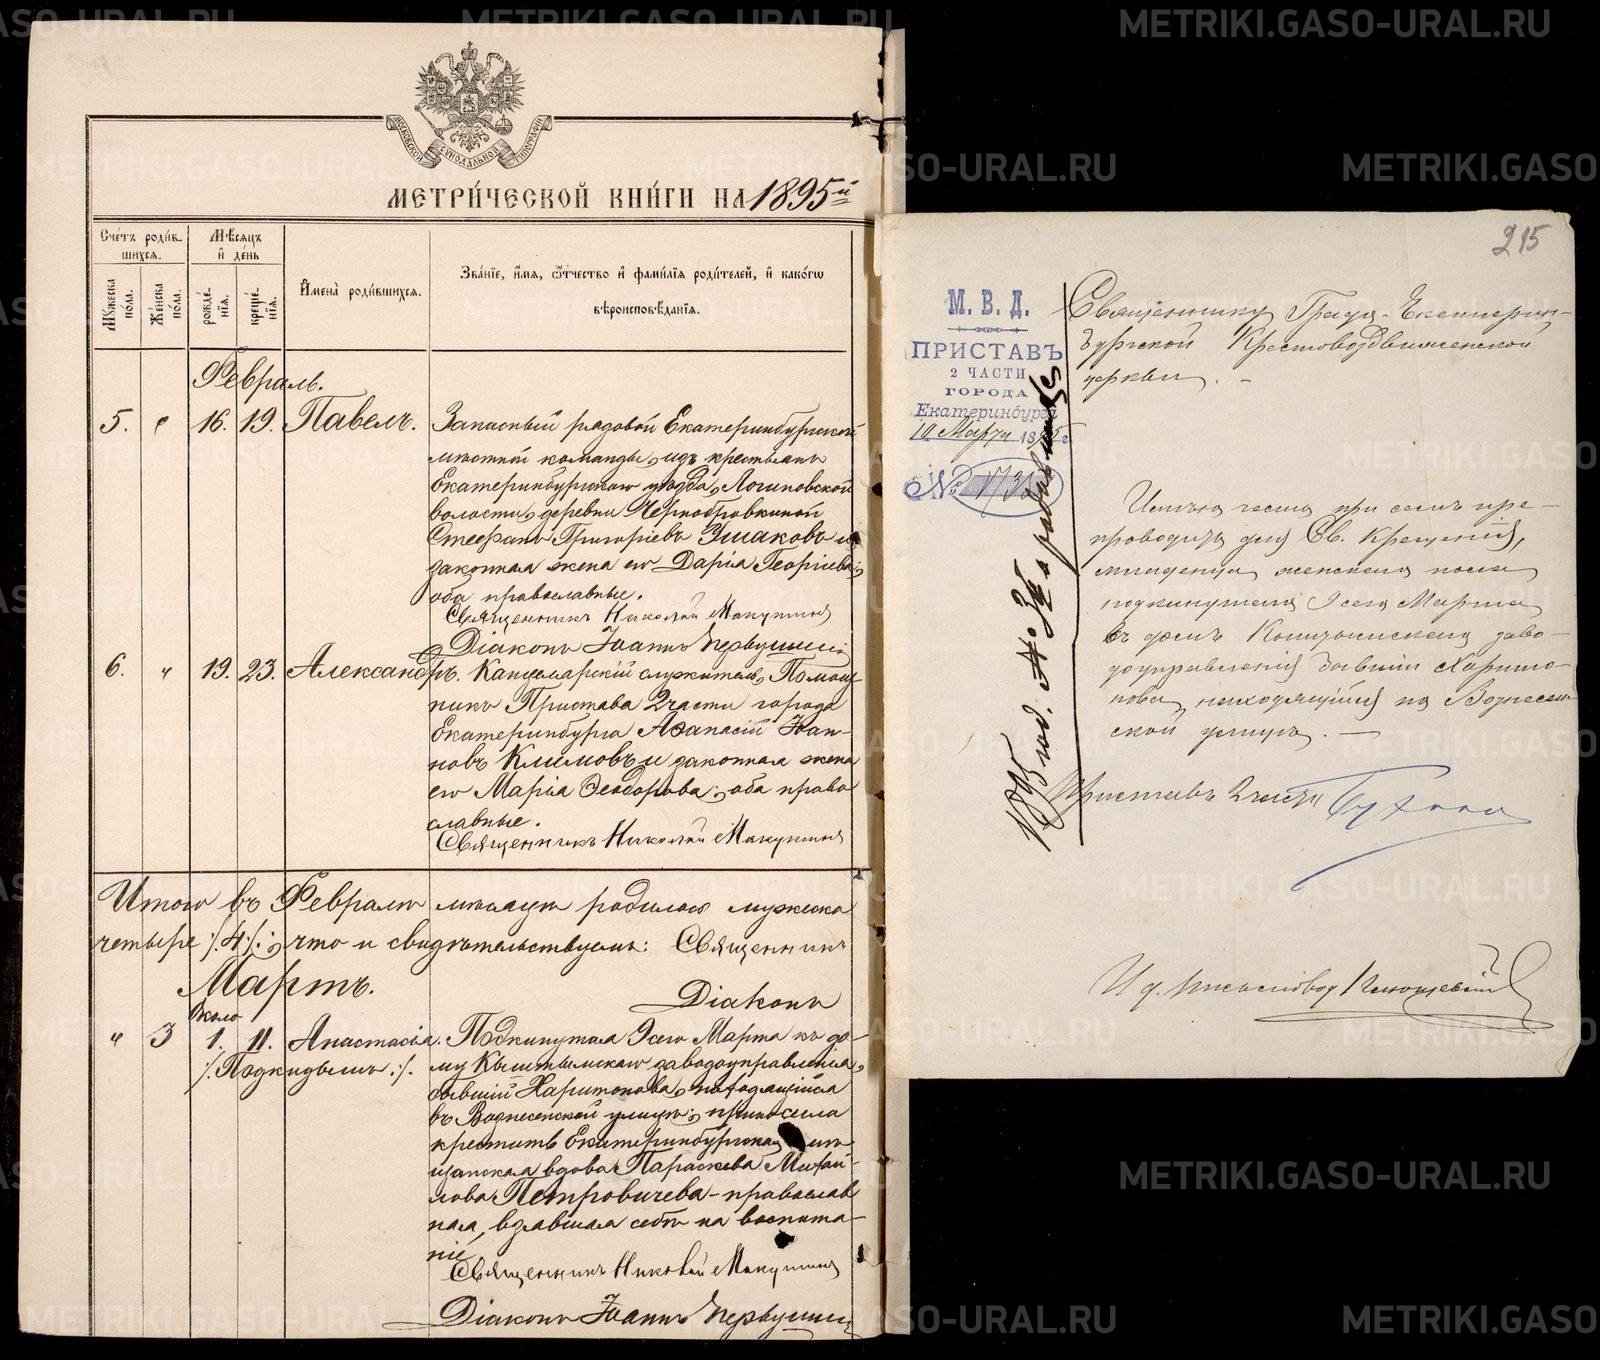 МОСКОВСКОЙ СѴНОДАЛЬНОЙ ТИПОГРАФІИ
МЕТРИ́ЧЕСКОЙ КНИ́ГИ НА 1895й
Сче́тъ роди́в-
шихся.
Мѣ́сяцъ
и҆ де́нь
Му́жеска по́ла.
Же́нска по́ла.
рожде́нїѧ.
креще́нїѧ.
И҆мена̀ роди́вшихся.
Зва́нїе, и҆́мя, ѻ҆́тчество и҆ фами́лїя роди́телей, и҆ како́гѡ
вѣроисповѣ́данїя.
Февраль.
5. „ 16. 19. Павелъ. Запасный рядовой Екатеринбургской
мѣстной команды, изъ крестьянъ
Екатеринбургскаго уѣзда, Логиновской
волости, деревни Чернобровкиной
Стефанъ Григоріевъ Ушаковъ и
законная жена его Дарія Георгіева;
оба православные.
Священникъ Николай Макушинъ
Діаконъ Іоаннъ Первушинъ
6. „ 19. 23. Александръ. Канцелярскій служитель, Помощ-
никъ Пристава 2 части города
Екатеринбурга Аѳанасій Іоан-
новъ Климовъ и законная жена
его Марія Ѳеодорова; оба право
славные.
Священникъ Николай Макушинъ
Итого въ Февралѣ мѣсяцѣ родилось мужеска
четыре /.4./.; что и свидѣтельствуемъ: Священникъ
Діаконъ
Мартъ.
Около
„ 3 1. 11. Анастасія. Подкинутая 9сего Марта къ до-
/. Подкидышъ ./. му Кыштымскаго заводоуправленія,
бывшій Харитонова, находящійся
въ Вознесенской улицѣ; приносила
крестить Екатеринбургская мѣ
щанская вдова Параскева Михай-
лова Петровичева - православ
ная, взявшая себѣ на воспита-
ніе
Священникъ Николай Макушинъ
Діаконъ Іоаннъ Первушинъ
215
М. В. Д.
ПРИСТАВЪ
2 ЧАСТИ
ГОРОДА
Екатеринбурга
10 Марта 1895 г
№
Священнику Града-Екатерин-
бургской Крестовоздвиженской
церкви. -
1895 год.
Имѣю честь при семъ пре-
проводить для Св. Крещенія,
младенца женскаго пола
подкинутаго 9 сего Марта
въ домъ Кыштымскаго заво-
доуправленія бывшій Харито-
нова, находящійся на Вознесен-
ской улицѣ. -
Приставъ 2 части
И д. письмовод.
METRIKI.GASO-URAL.RU